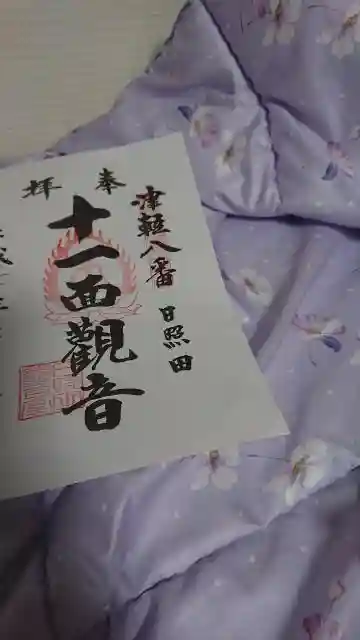 奉拝
津軽八番 日照田
十一面觀音